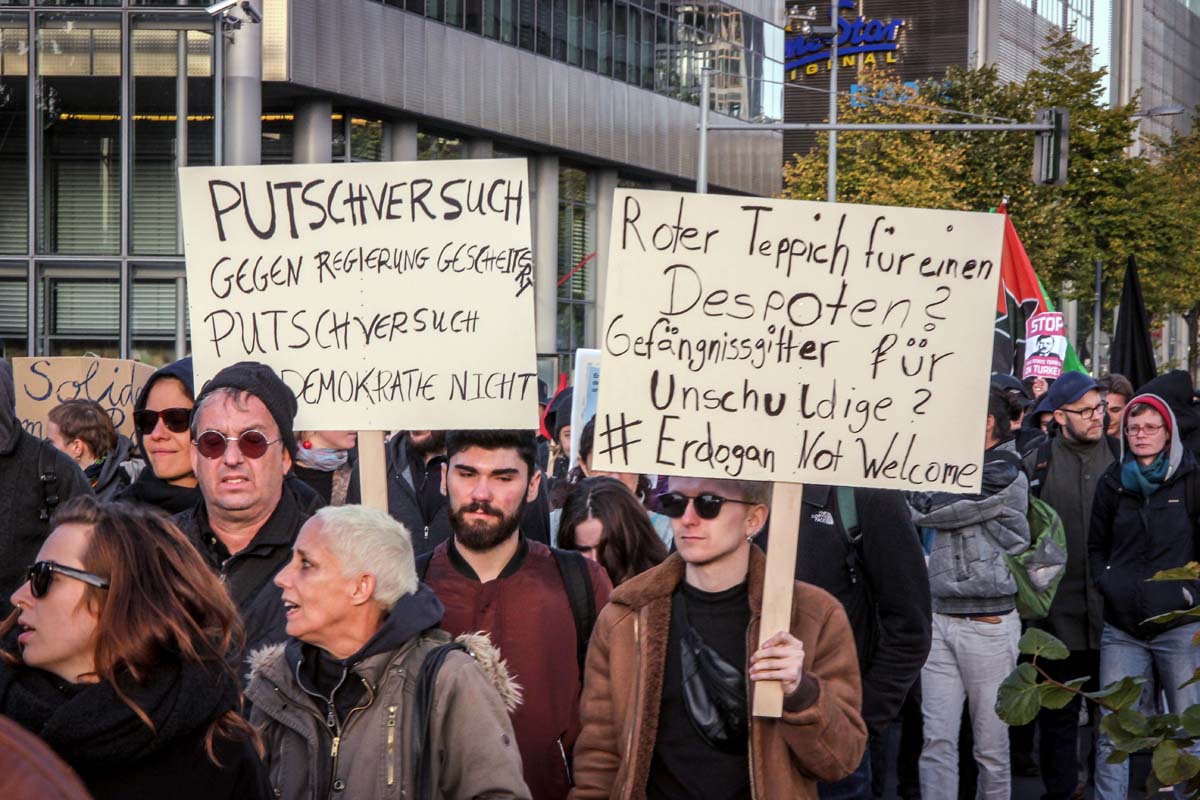 Star
IGINAL
PUTSCHVERSUCH
GEGEN REGIERUNG GESCHEITERT
PUTSCHVERSUCH
DEMOKRATIE NICHT
Roter Teppich für einen
Despoten?
Gefängnissgitter für
Unschuldige?
# Erdogan Not Welcome
Solid
STOP
IN TURKEY
THE NORTH FACE